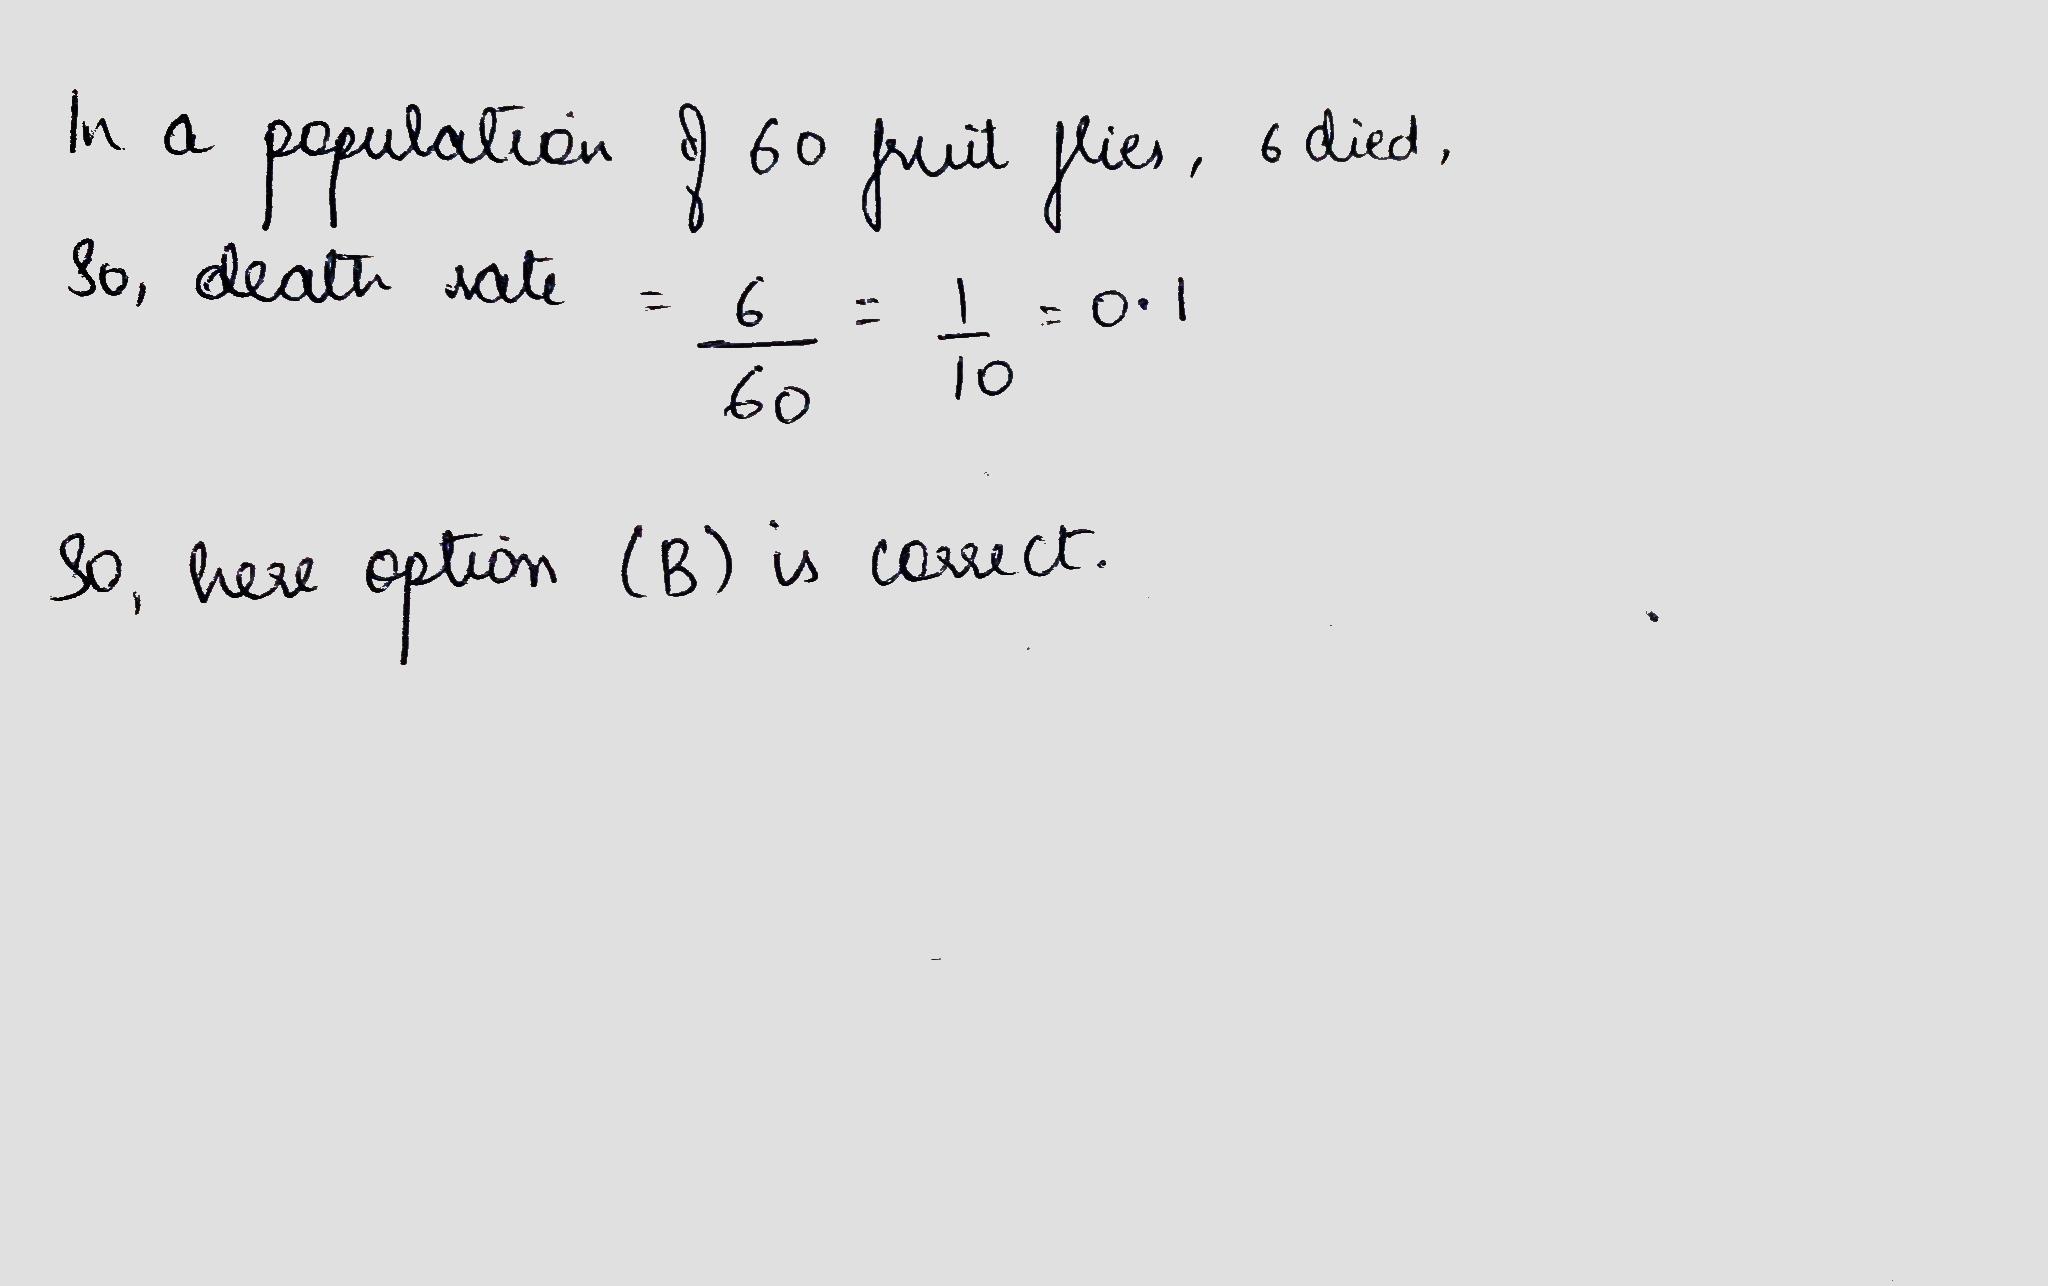 In a population of 60 fruit flies, 6 died,
So, death rate = 6/60 = 1/10 = 0.1
So, here option (B) is correct.